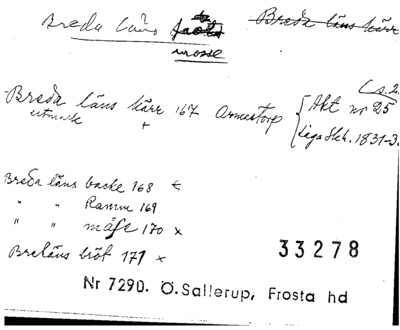 Breda läns mosse
Breda läns kärr
(s. 2.
Breda läns kärr 167 Armestorp { Akt nr 25
utmark + Laga Skh. 1831-3.
Breda läns backe 168 ×
" " Ramm 169
" " måse 170 ×
Breläns 171 ×
33278
Nr 7290. Ö.Sallerup, Frosta hd